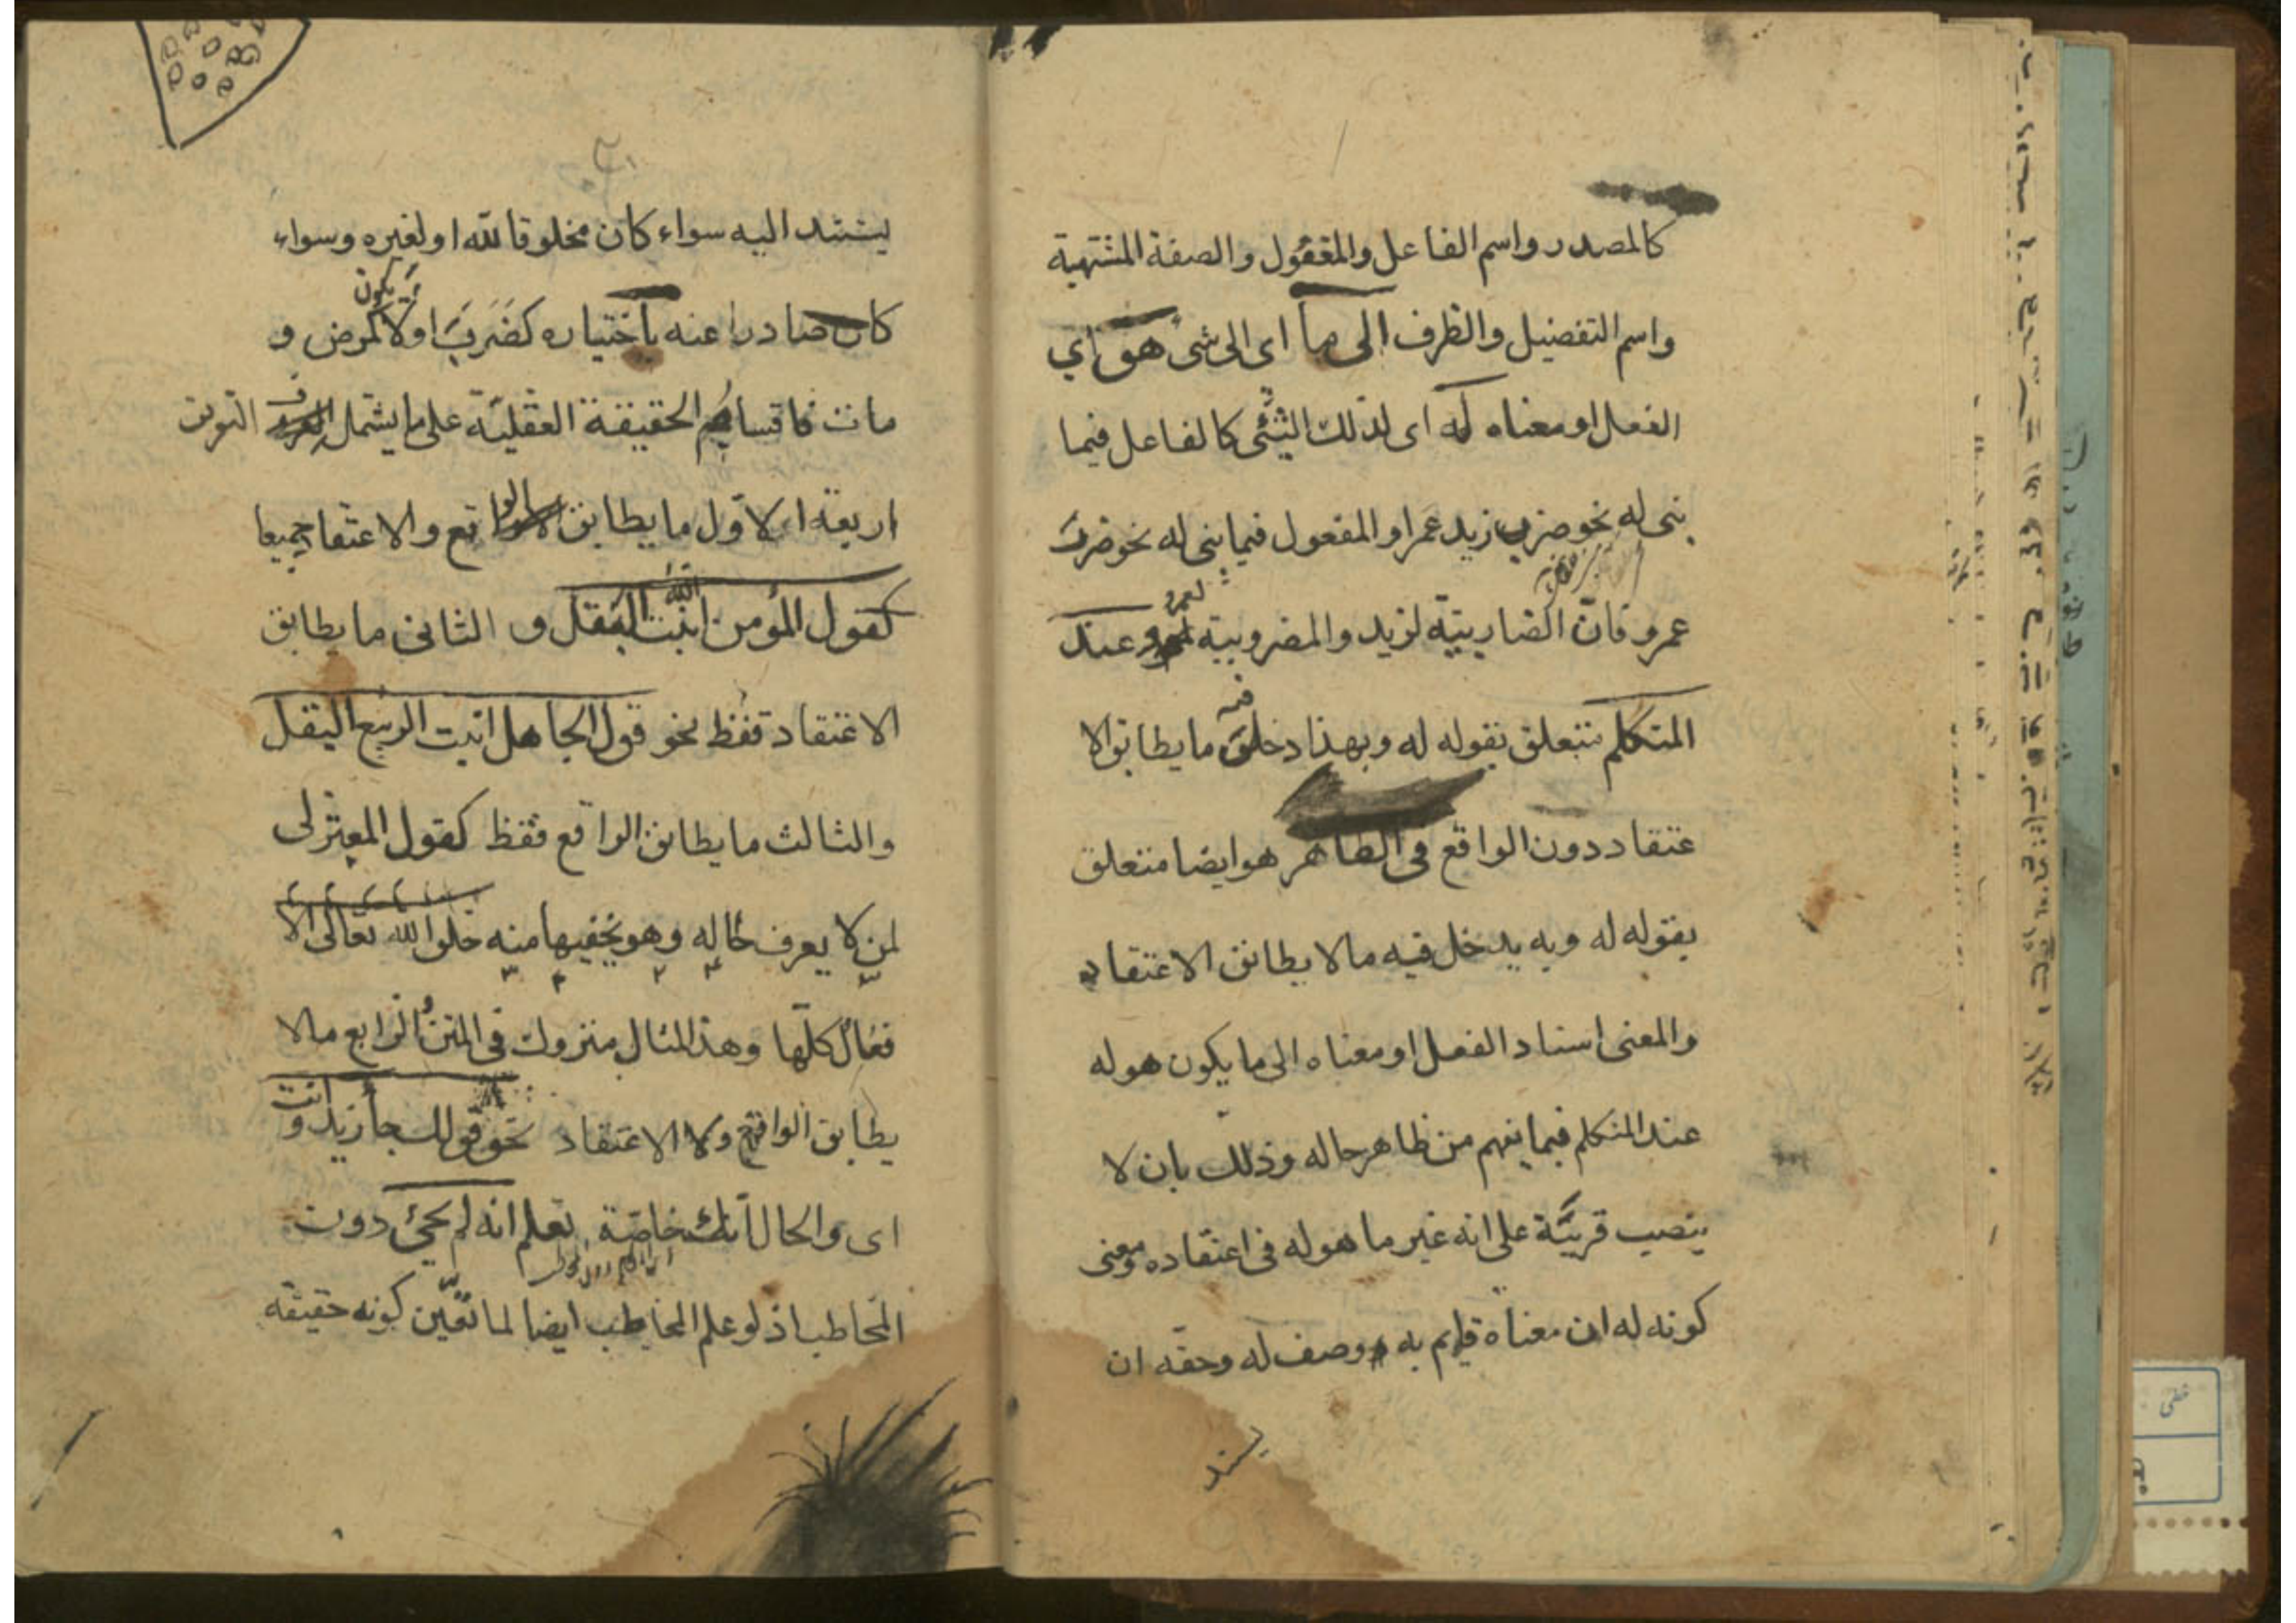 كالمصدر واسم الفاعل والمفعول والصفة المشبهة
واسم التفضيل والظرف الى ما اى الى شئ هو اي
الفعل او معناه له اى لذلك الشئ كالفاعل فيما
بنى له نحو ضرب زيد عمرا والمفعول فيما بنى له نحو ضرب
عمرو فان الضاربية لزيد والمضروبية لعمرو عند
المتكلم متعلق بقوله له وبهذا دخل فيه ما يطابق الا
عتقاد دون الواقع فى الظاهر هو ايضا متعلق
بقوله له وبه يدخل فيه ما لا يطابق الاعتقاد
والمعنى اسناد الفعل او معناه الى ما يكون هو له
عند المتكلم فيما يفهم من ظاهر حاله وذلك بان لا
ينصب قرينة على انه غير ما هو له فى اعتقاده ومعنى
كونه له ان معناه قايم به ووصف له وحقه ان
يسند
يسند اليه سواء كان مخلوقا لله او لغيره وسواء
كان صادرا عنه باختياره كضرب او لا يكون كمرض و
مات فاقسام الحقيقة العقلية على ما يشمل التعريف
اربعة الاول ما يطابق الواقع والاعتقاد جميعا
كقول المؤمن انبت الله البقل و الثانى ما يطابق
الاعتقاد فقط نحو قول الجاهل انبت الربيع البقل
والثالث ما يطابق الواقع فقط كقول المعتزلى
لمن لا يعرف حاله وهو يخفيها منه خلق الله تعالى الا
فعال كلها وهذا المثال متروك فى المتن الرابع ما لا
يطابق الواقع ولا الاعتقاد نحو قولك جأ زيد وانت
اى والحال انك خاصة تعلم انه لم يجئ دون
المخاطب اذ لو علم المخاطب ايضا لما تعين كونه حقيقة